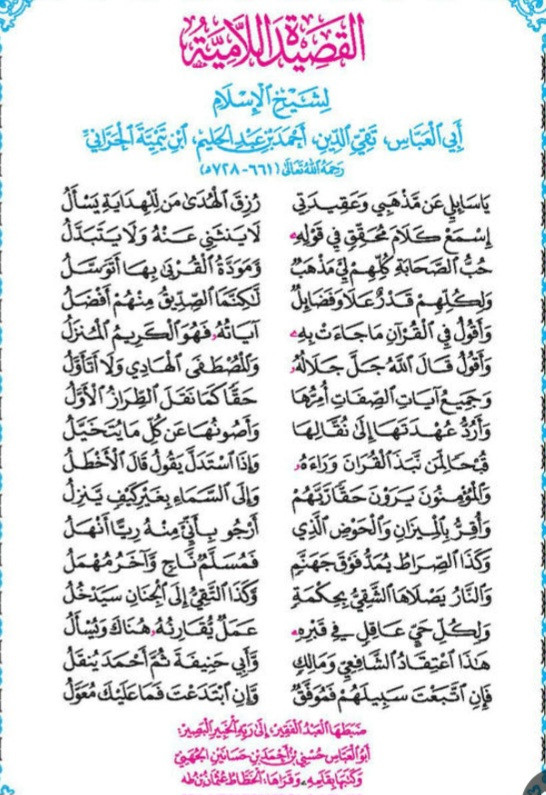 القَصِيدَةُ اللَّامِيَّةُ
لِشَيْخِ الْإِسْلَامِ
أَبِي الْعَبَّاسِ، تَقِيِّ الدِّينِ، أَحْمَدَ بْنِ عَبْدِ الْحَلِيمِ، ابْنِ تَيْمِيَّةَ الْحَرَّانِيِّ
رَحِمَهُ اللهُ تَعَالَى (٦٦١-٧٢٨هـ)
يَا سَائِلِي عَنْ مَذْهَبِي وَعَقِيدَتِي رُزِقَ الْهُدَىٰ مَنْ لِلْهِدَايَةِ يَسْأَلُ
إِسْمَعْ كَلَامَ مُحَقِّقٍ فِي قَوْلِهِ لَا يَنْثَنِي عَنْهُ وَلَا يَتَبَدَّلُ
حُبُّ الصَّحَابَةِ كُلِّهِمْ لِي مَذْهَبٌ وَمَوَدَّةُ الْقُرْبَىٰ بِهَا أَتَوَسَّلُ
وَلِكُلِّهِمْ قَدْرٌ عَلَا وَفَضَائِلٌ لَٰكِنَّمَا الصِّدِّيقُ مِنْهُمْ أَفْضَلُ
وَأَقُولُ فِي الْقُرْآنِ مَا جَاءَتْ بِهِ آيَاتُهُ فَهُوَ الْكَرِيمُ الْمُنْزَلُ
وَأَقُولُ قَالَ اللَّهُ جَلَّ جَلَالُهُ وَالْمُصْطَفَى الْهَادِي وَلَا أَتَأَوَّلُ
وَجَمِيعُ آيَاتِ الصِّفَاتِ أُمِرُّهَا حَقًّا كَمَا نَقَلَ الطِّرَازُ الْأَوَّلُ
وَأَرُدُّ عُهْدَتَهَا إِلَىٰ نُقَّالِهَا وَأَصُونُهَا عَنْ كُلِّ مَا يُتَخَيَّلُ
قُبْحًا لِمَنْ نَبَذَ الْقُرَانَ وَرَاءَهُ وَإِذَا اسْتَدَلَّ يَقُولُ قَالَ الْأَخْطَلُ
وَالْمُؤْمِنُونَ يَرَوْنَ حَقًّا رَبَّهُمْ وَإِلَى السَّمَاءِ بِغَيْرِ كَيْفٍ يَنْزِلُ
وَأُقِرُّ بِالْمِيزَانِ وَالْحَوْضِ الَّذِي أَرْجُو بِأَنِّي مِنْهُ رِيًّا أَنْهَلُ
وَكَذَا الصِّرَاطُ يُمَدُّ فَوْقَ جَهَنَّمٍ فَمُسَلَّمٌ نَاجٍ وَآخَرُ مُهْمَلُ
وَالنَّارُ يَصْلَاهَا الشَّقِيُّ بِحِكْمَةٍ وَكَذَا التَّقِيُّ إِلَى الْجِنَانِ سَيَدْخُلُ
وَلِكُلِّ حَيٍّ عَاقِلٍ فِي قَبْرِهِ عَمَلٌ يُقَارِنُهُ هُنَاكَ وَيُسْأَلُ
هَذَا اعْتِقَادُ الشَّافِعِيِّ وَمَالِكٍ وَأَبِي حَنِيفَةَ ثُمَّ أَحْمَدَ يُنْقَلُ
فَإِنِ اتَّبَعْتَ سَبِيلَهُمْ فَمُوَفَّقٌ وَإِنِ ابْتَدَعْتَ فَمَا عَلَيْكَ مُعَوَّلُ
ضَبَطَهَا الْعَبْدُ الْفَقِيرُ، إِلَىٰ رَبِّهِ الْخَبِيرِ الْبَصِيرِ:
أَبُو الْعَبَّاسِ حُسْنِي بْنُ أَحْمَدَ بْنِ حَسَانَيْنِ الْجُهَنِيُّ
وَكَتَبَهَا بِقَلَمِهِ، وَقَرَأَهَا، الْخَطَّاطُ عُثْمَانُ طَهَ